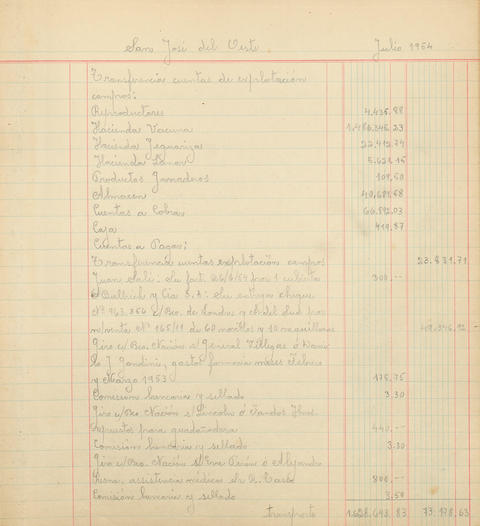 San José del Oeste. Julio 1954
Transferencia cuentas de explotación
campos:
Reproductores 4.435.88
Hacienda Vacuna 1.486.346.23
Hacienda Yeguariza 22.412.74
Hacienda Lanar 5.621.15
Productos Ganaderos 109,50
Almacen
Cuentas a Cobrar
Caja 419,87
Cuentas a Pagar:
Transferencia cuentas explotación campos 23.831.71
Juan : Su fact. por 1 cubierta 300.--
y Cia S.A: Su entrega cheque
Nº 963.866 c/Bco. de Londres y A. del Sud por
n/venta Nº 165/11 de 60 novillos y 10 vaquillonas
Giro c/Bco. Nación s/General Villegas ó
J. Gandini, gastos farmacia meses Febrero
y Marzo 1953 175,75
Comisión bancaria y sellado 3.30
Giro c/Bco. Nación s/Lincoln ó Hnos.
Repuestos para guadañadora 440.--
Comisión bancaria y sellado 3.30
Giro c/Bco. Nación s/Eva Perón ó Alejandro
, assistencia médica dr. 800.--
Comisión bancaria y sellado 3,50
transporte 73.178,63